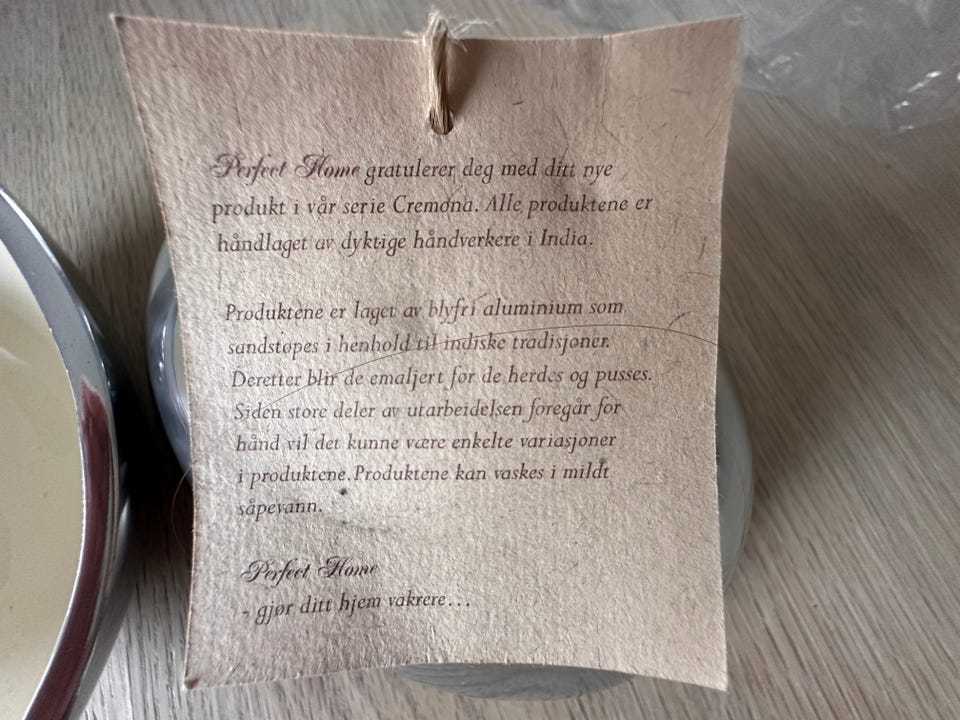 Perfect Home gratulerer deg med ditt nye
produkt i vår serie Cremona. Alle produktene er
håndlaget av dyktige håndverkere i India.
Produktene er laget av blyfri aluminium som
sandstøpes i henhold til indiske tradisjoner.
Deretter blir de emaljert før de herdes og pusses.
Siden store deler av utarbeidelsen foregår for
hånd vil det kunne være enkelte variasjoner
i produktene. Produktene kan vaskes i mildt
såpevann.
Perfect Home
- gjør ditt hjem vakrere...